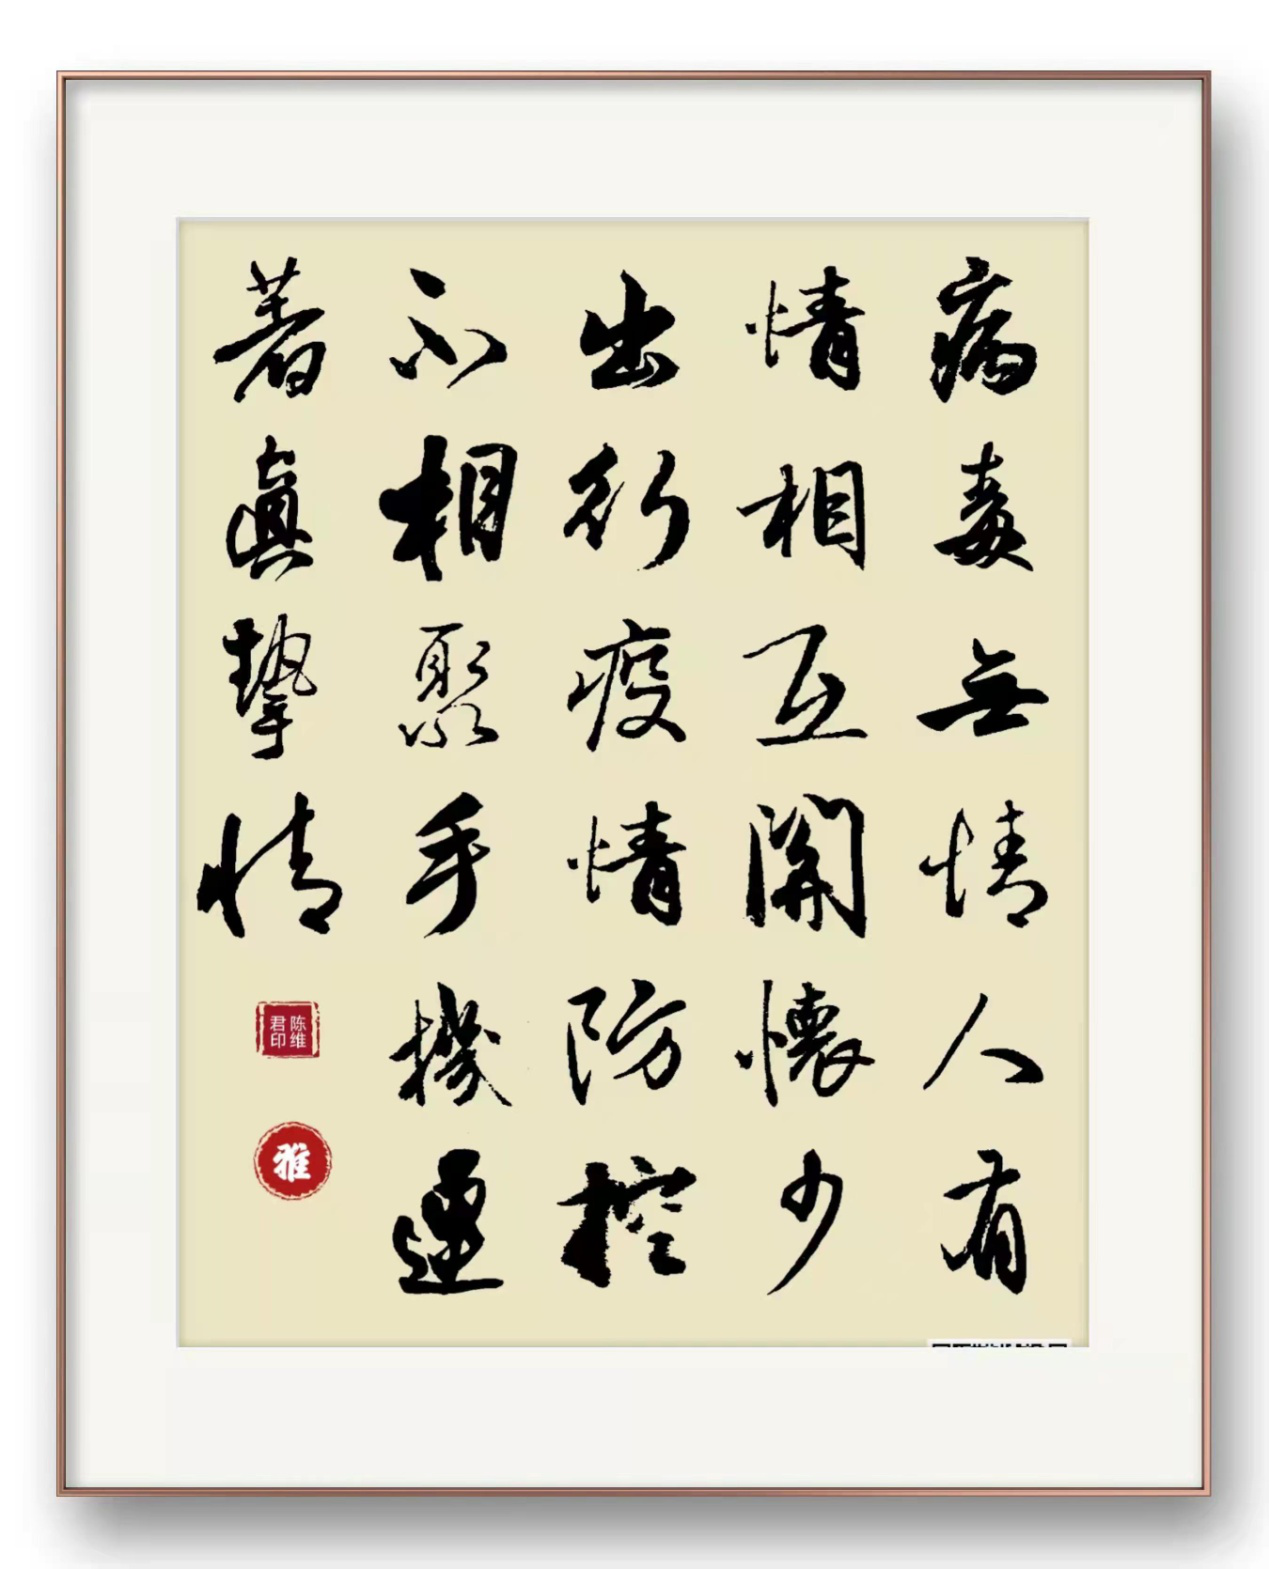 病毒無情人有
情相互關懷少
出行疫情防控
不相聚手機運
著眞摯情
陈维
君印
雅